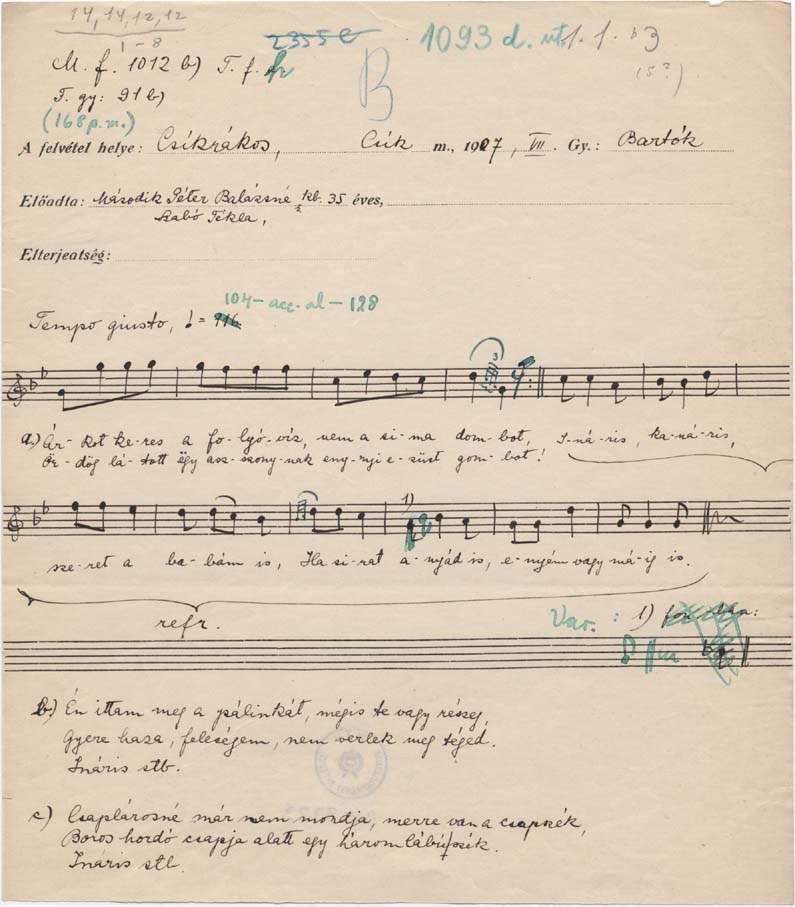 14, 14, 12, 12
1-8
2355 e
1093 d.
M. f. 1012 b) T. f.
T. gy: 91 b)
(168 p. m.)
B
3
(5?)
A felvétel helye: Csíkrákos, Csík m., 1907, VII. Gy.: Bartók
Előadta: Második Péter Balázsné kb. 35 éves,
Szabó Tekla,
Elterjeatség:
104 - acc. al - 128
Tempo giusto, ♩ =
3
a.) Ár- kot ke- res a fo- lyó- víz, nem a si- ma dom- bot, I- ná- ris, ka- ná- ris,
Ör- dög lá- tott ëgy asz- szony- nak eny- nyi e- züst gom- bot!
1)
sze- ret a ba- bám is, Ha si- rat a- nyád is, e- nyém vagy má- ig is.
refr.
Var. : 1)
b.) Én ittam meg a pálinkát, mégis te vagy részeg,
Gyere haza, feleségem, nem verlek meg téged.
Ináris stb.
c) Csaplárosné már nem mondja, merre van a csapszék,
Boros hordó csapja alatt egy háromlábú szék.
Ináris stb.